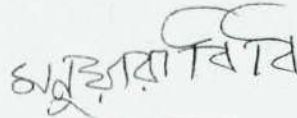 মনুয়ারা বিবি